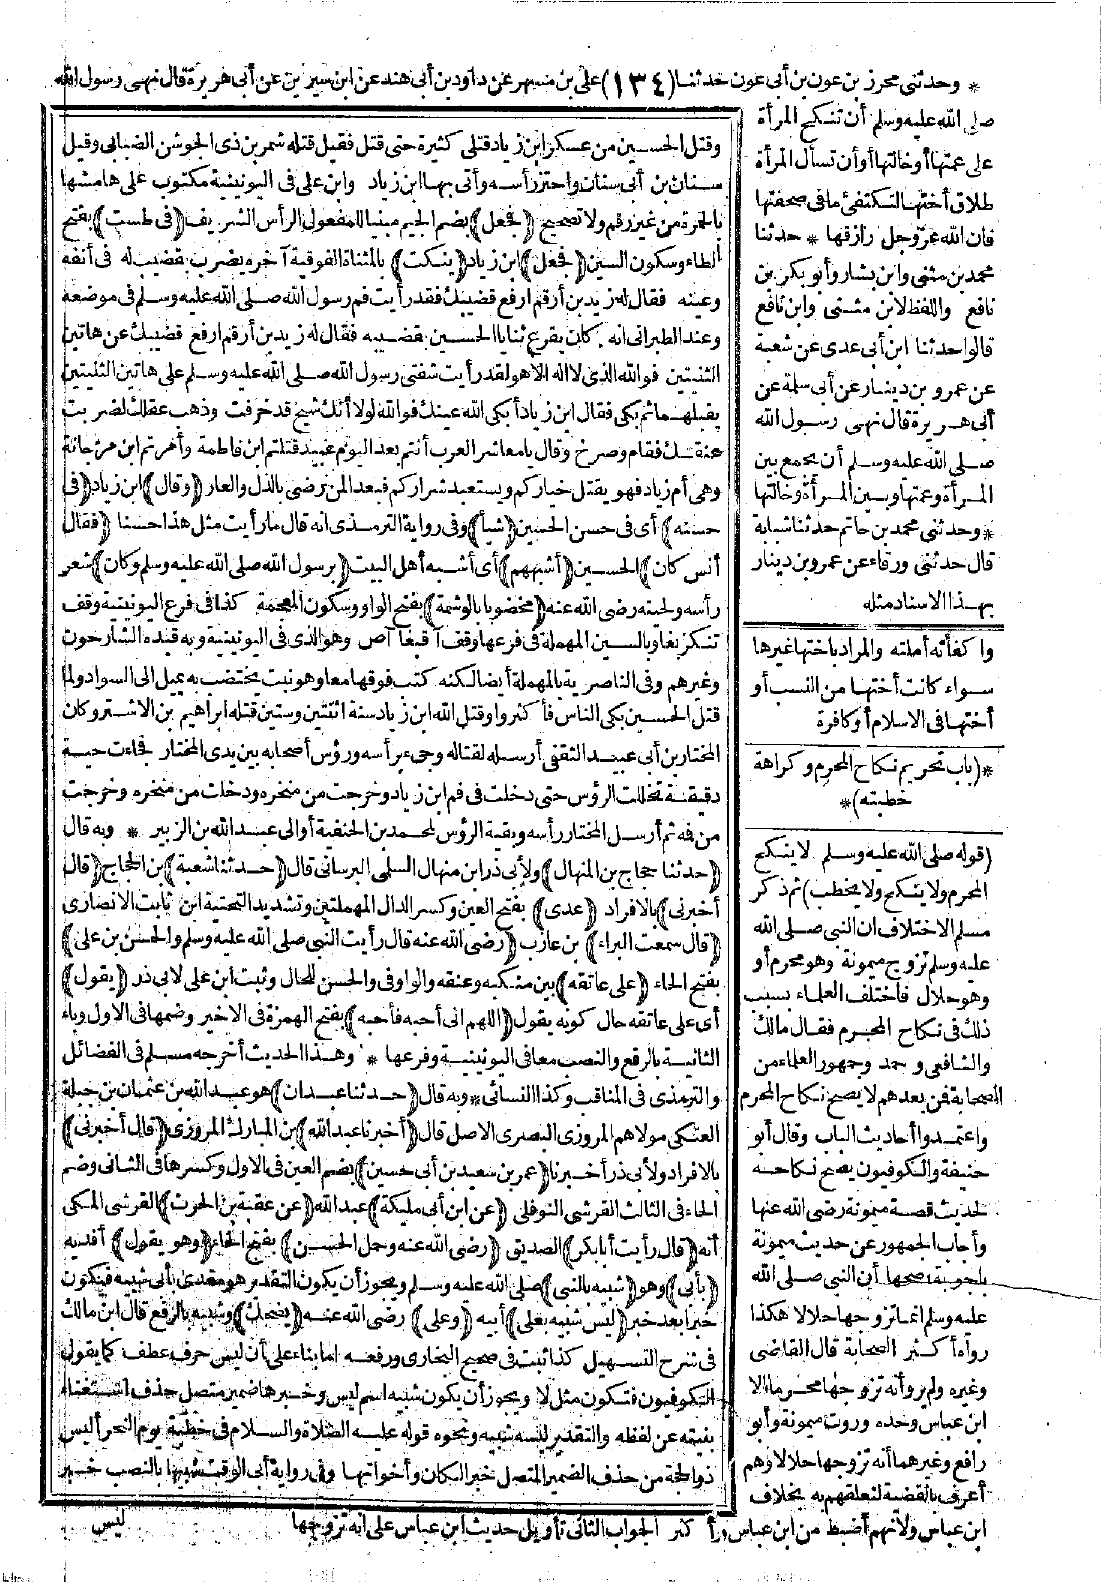 * وحدثني محرز بن عون بن أبي عون حدثنا (١٣٤) علي بن مسهر عن داود بن أبي هند عن ابن سيرين عن أبي هريرة قال نهى رسول الله
صلى الله عليه وسلم أن تنكح المرأة
على عمتها أو خالتها أو أن تسأل المرأة
طلاق أختها لتكتفئ ما في صحفتها
فان الله عز وجل رازقها * حدثنا
محمد بن مثنى وابن بشار وأبو بكر بن
نافع واللفظ لابن مثنى وابن نافع
قالوا حدثنا ابن أبي عدي عن شعبة
عن عمرو بن دينار عن أبي سلمة عن
أبي هريرة قال نهى رسول الله
صلى الله عليه وسلم أن يجمع بين
المرأة وعمتها وبين المرأة وخالتها
* وحدثني محمد بن حاتم حدثنا شبابة
قال حدثني ورقاء عن عمرو بن دينار
بهذا الاسناد مثله
واكفأته أملته والمراد باختها غيرها
سواء كانت أختها من النسب أو
أختها في الاسلام أو كافرة
* (باب تحريم نكاح المحرم وكراهة
خطبته) *
(قوله صلى الله عليه وسلم لا ينكح
المحرم ولا ينكح ولا يخطب) ثم ذكر
مسلم الاختلاف ان النبي صلى الله
عليه وسلم تزوج ميمونة وهو محرم أو
وهو حلال فاختلف العلماء بسبب
ذلك في نكاح المحرم فقال مالك
والشافعي و حمد وجمهور العلماء من
الصحابة فمن بعدهم لا يصح نكاح المحرم
واعتمدوا أحاديث الباب وقال أبو
حنيفة والكوفيون يصح نكاحه
لحديث قصة ميمونة رضي الله عنها
وأجاب الجمهور عن حديث ميمونة
باجوبة أصحها أن النبي صلى الله
عليه وسلم انما تزوجها حلالا هكذا
رواه أكثر الصحابة قال القاضي
وغيره ولم يروأنه تزوجها محرما الا
ابن عباس وحده وروت ميمونة وأبو
رافع وغيرهما أنه تزوجها حلالا وهم
أعرف بالقضية لتعلقهم به بخلاف
ابن عباس ولانهم أضبط من ابن عباس وأكثر الجواب الثاني تأويل حديث ابن عباس على أنه تزوجها
وقتل الحسين من عسكر ابن زياد قتلى كثيرة حتى قتل فقيل قتله شمر بن ذي الجوشن الضبابي وقيل
سنان بن أبي سنان واحتز رأسه وأتى بها ابن زياد وابن علي في اليونينية مكتوب على هامشها
بالحمرة من غير رقم ولا تصحيح (فجعل) بضم الجيم مبنيا للمفعول الرأس الشريف (في طست) بفتح
الطاء وسكون السين (فجعل) ابن زياد (ينكت) بالمثناة الفوقية آخره يضرب بقضيب له في أنفه
وعينه فقال له زيد بن أرقم ارفع قضيبك فقد رأيت فم رسول الله صلى الله عليه وسلم في موضعه
وعند الطبراني انه كان يقرع ثنايا الحسين بقضيبه فقال له زيد بن أرقم ارفع قضيبك عن هاتين
الثنيتين فوالله الذي لا اله الا هو لقد رأيت شفتي رسول الله صلى الله عليه وسلم على هاتين الثنيتين
يقبلهما ثم بكى فقال ابن زياد أبكى الله عينك فوالله لولا أنك شيخ قد خرفت وذهب عقلك لضربت
عنقك فقام وصرخ وقال يا معاشر العرب أنتم بعد اليوم عبيد قتلتم ابن فاطمة وأمرتم ابن مرجانة
وهي أم زياد فهو يقتل خياركم ويستعبد شراركم فبعدا لمن رضي بالذل والعار (وقال) ابن زياد (في
حسنه) أي في حسن الحسين (شيأ) وفي رواية الترمذي انه قال ما رأيت مثل هذا حسنا (فقال
أنس كان) الحسين (أشبههم) أي أشبه أهل البيت (برسول الله صلى الله عليه وسلم وكان) شعر
رأسه ولحيته رضي الله عنه (مخضوبا بالوشمة) بفتح الواو وسكون المعجمة كذا في فرع اليونينية وقف
تنكز بغا وبالسين المهملة في فرعها وقف آقبغا آص وهو الذي في اليونينية وبه قيده الشارحون
وغيرهم وفي الناصرية بالمهملة أيضا لكنه كتب فوقها معا وهو نبت يختضب به يميل الى السواد ولما
قتل الحسين بكى الناس فأكثروا وقتل الله ابن زياد سنة اثنتين وستين قتله ابراهيم بن الاشتر وكان
المختار بن أبي عبيد الثقفي أرسله لقتاله وجيء برأسه ورؤس أصحابه بين يدي المختار فجاءت حية
دقيقة تخللت الرؤس حتى دخلت في فم ابن زياد وخرجت من منخره ودخلت من منخره وخرجت
من فمه ثم أرسل المختار رأسه وبقية الرؤس لمحمد بن الحنفية أو الى عبد الله بن الزبير * وبه قال
(حدثنا حجاج بن المنهال) ولأبي ذر ابن منهال السلمي البرساني قال (حدثنا شعبة) بن الحجاج (قال
أخبرني) بالافراد (عدي) بفتح العين وكسر الدال المهملتين وتشديد التحتية ابن ثابت الانصاري
(قال سمعت البراء) بن عازب (رضي الله عنه قال رأيت النبي صلى الله عليه وسلم والحسن بن علي)
بفتح الحاء (على عاتقه) بين منكبه وعنقه والواو في والحسن للحال وثبت ابن علي لابي ذر (يقول)
أي على عاتقه حال كونه يقول (اللهم اني أحبه فأحبه) بفتح الهمزة في الاخير وضمها في الاول وباء
الثانية بالرفع والنصب معا في اليونينية وفرعها * وهذا الحديث أخرجه مسلم في الفضائل
والترمذي في المناقب وكذا النسائي * وبه قال (حدثنا عبدان) هو عبد الله بن عثمان بن جبلة
العتكي مولاهم المروزي البصري الاصل قال (أخبرنا عبد الله) بن المبارك المروزي (قال أخبرني)
بالافراد ولأبي ذر أخبرنا (عمر بن سعيد بن أبي حسين) بضم العين في الاول وكسرها في الثاني وضم
الحاء في الثالث القرشي النوفلي (عن ابن أبي مليكة) عبد الله (عن عقبة بن الحرث) القرشي المكي
أنه (قال رأيت أبا بكر) الصديق (رضي الله عنه وحمل الحسن) بفتح الحاء (وهو يقول) أفديه
(بأبي) وهو (شبيه بالنبي) صلى الله عليه وسلم ويجوز أن يكون التقدير هو مفدى بأبي شبيه فيكون
خبرا بعد خبر (ليس شبيه بعلي) أبيه (وعلي) رضي الله عنه (يضحك) وشبيه بالرفع قال ابن مالك
في شرح التسهيل كذا ثبت في صحيح البخاري ورفعه اما بناء على أن ليس حرف عطف كما يقول
الكوفيون فتكون مثل لا ويجوز أن يكون شبيه اسم ليس وخبرها ضمير متصل حذف استغناء
بنيته عن لفظه والتقدير ليسه شبيه ونحوه قوله عليه الصلاة والسلام في خطبة يوم النحر أليس
ذو الحجة من حذف الضمير المتصل خبر الكان وأخواتها وفي رواية أبي الوقت شبيها بالنصب خبر
ليس